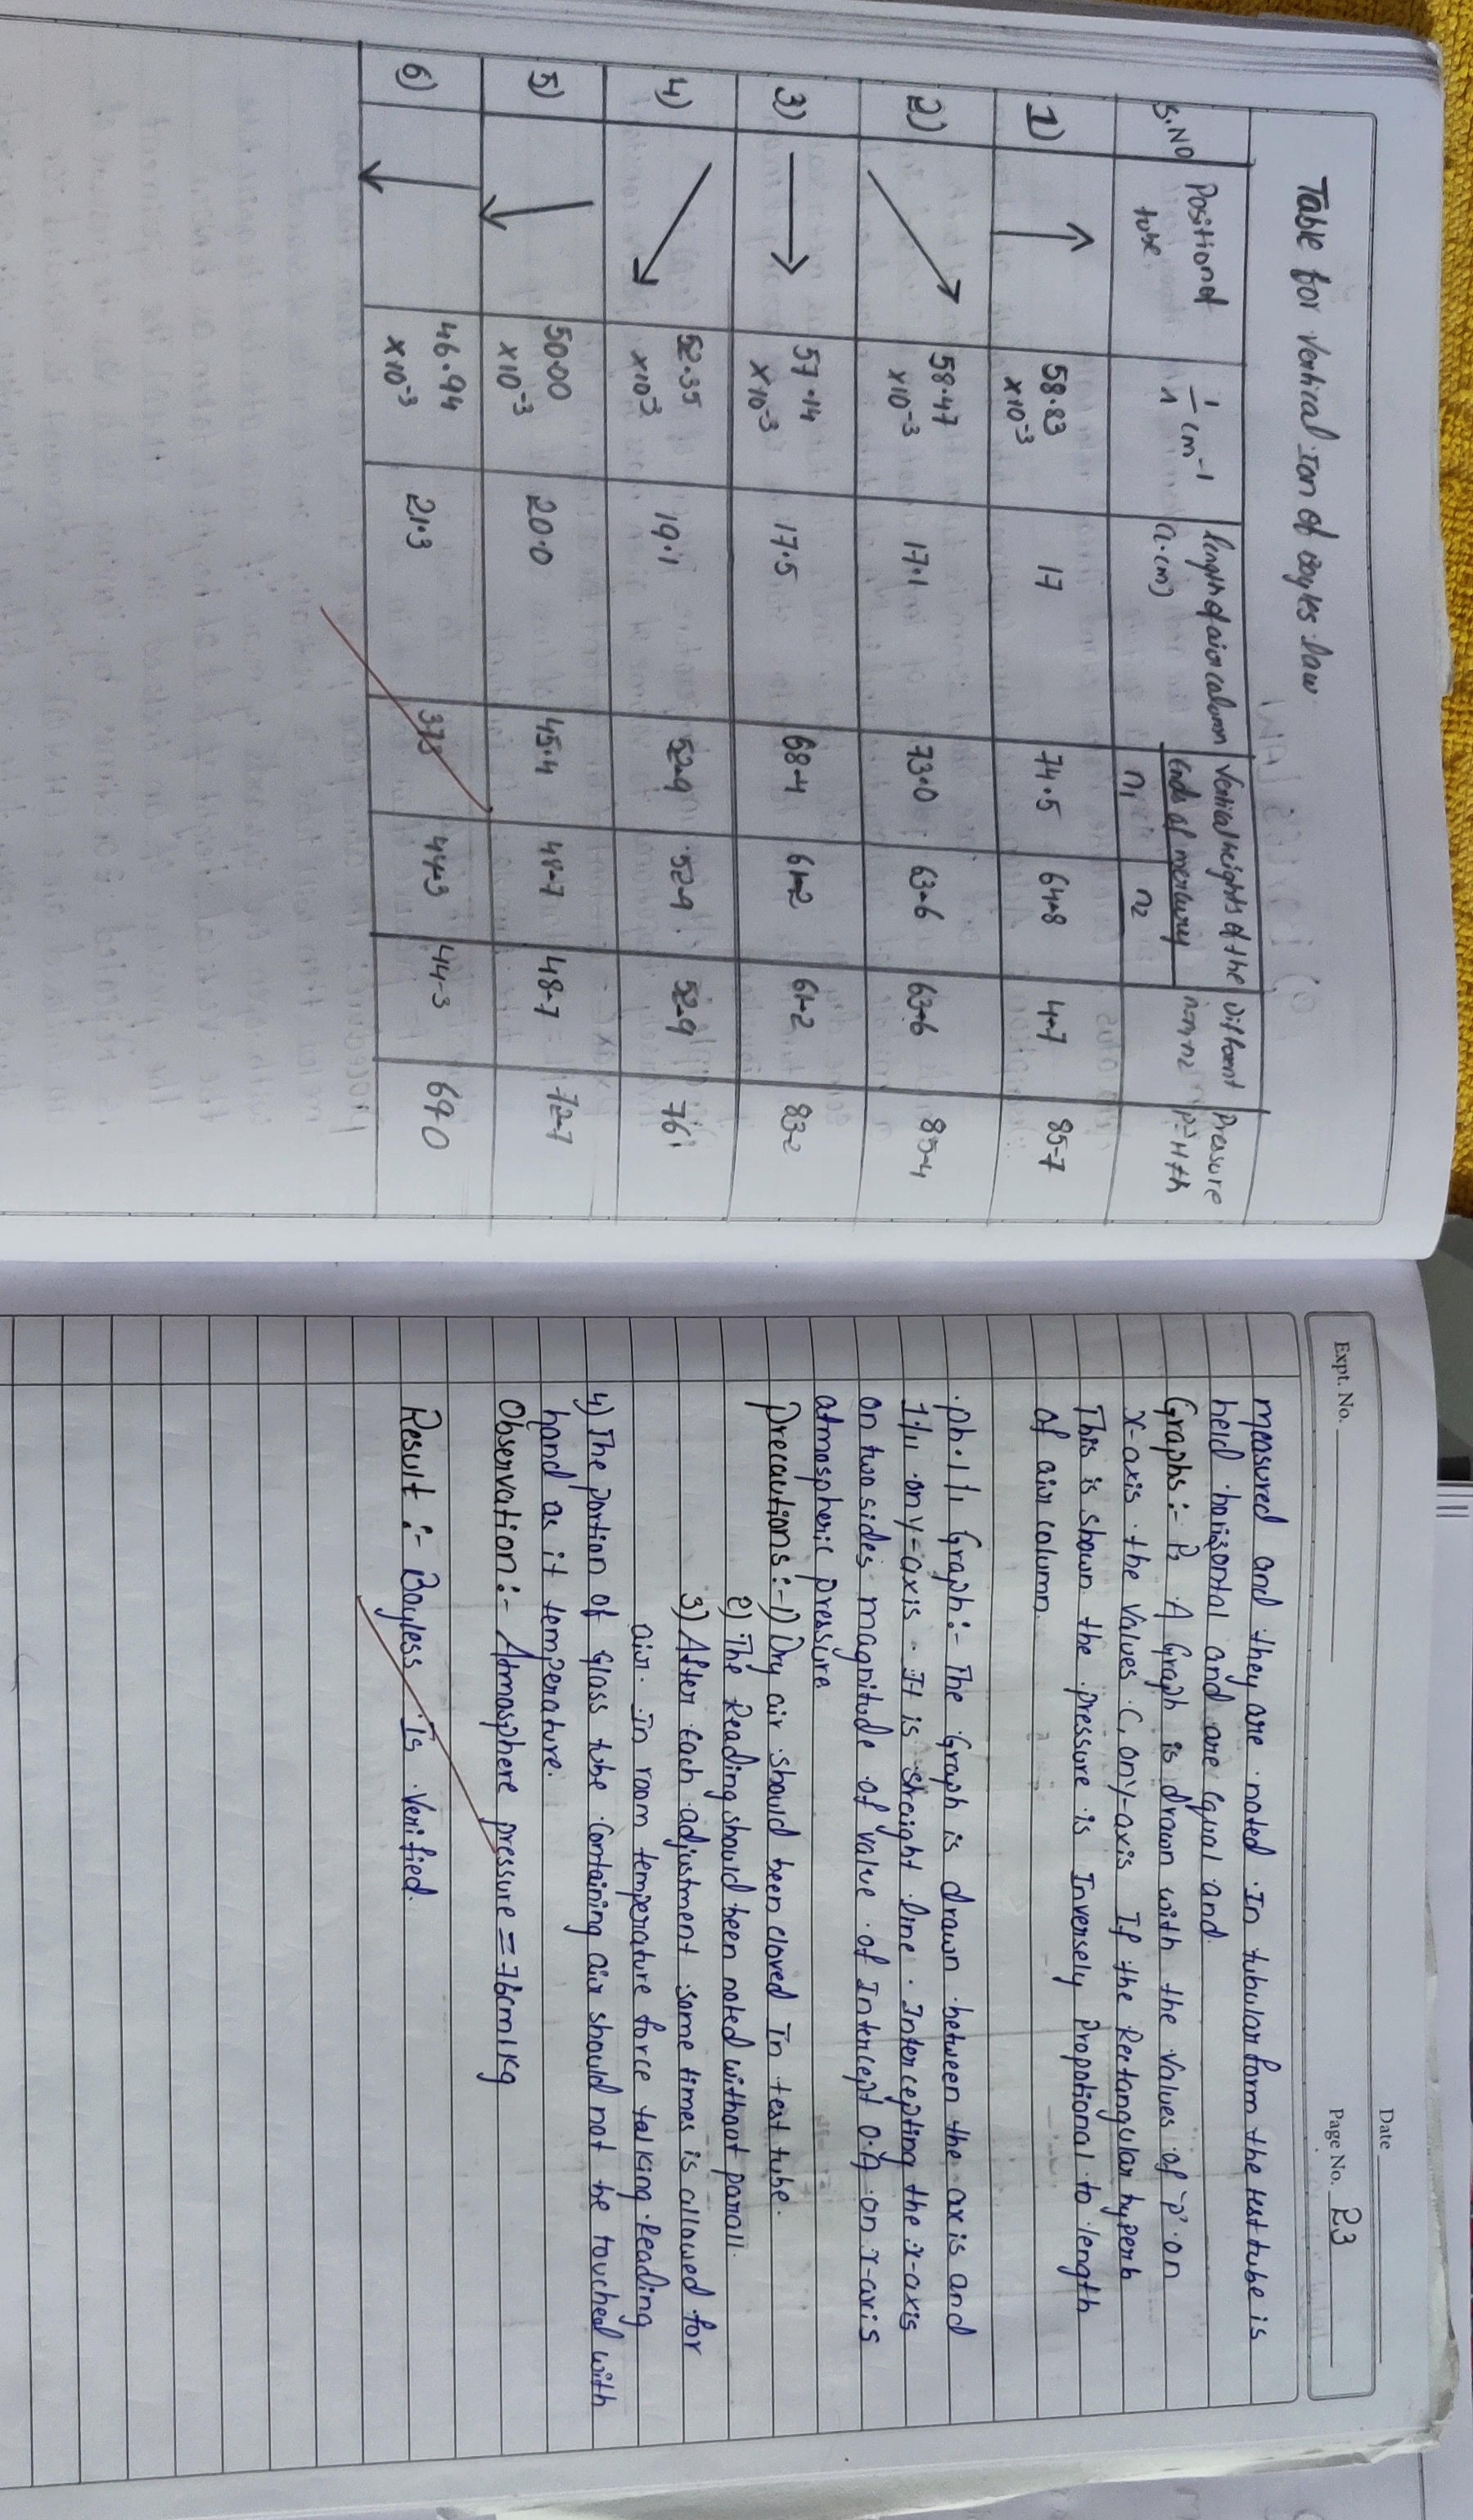 Table for Vertical Ion of doyles law
S.NO Position of tube 1/l cm⁻¹ length of air column (l.cm) Vertical heights of the ends of mercury n1 n2 Different n=n1-n2 Pressure P=H+h
1) ↑ 58.83 ×10⁻³ 17 74.5 64.8 4.7 85.7
2) ↗ 58.47 ×10⁻³ 17.1 73.0 63.6 63.6 85.4
3) → 57.14 ×10⁻³ 17.5 68.4 61.2 61.2 83.2
4) ↘ 52.35 ×10⁻³ 19.1 52.9 52.9 52.9 76.
5) ↓ 50.00 ×10⁻³ 20.0 45.4 48.7 48.7 72.7
6) ↓ 46.94 ×10⁻³ 21.3 44.3 44.3 69.0
Date
Expt. No. Page No. 23
measured and they are noted In tubular form the test tube is
held horizontal and are equal and
Graphs :- A Graph is drawn with the values of 'P' on
x-axis the values C, on y-axis If the Rectangular hyperb
This is shown the pressure is Inversely Propotional to length
of air column
Graph :- The Graph is drawn between the axis and
on y=axis. It is straight line. Intercepting the x-axis
on two sides magnitude of value of Intercept O.A on x-axis
atmospheric pressure
Precautions :- 1) Dry air should been cloved In test tube.
2) The Reading should been noted without parall.
3) After each adjustment some times is allowed for
air. In room temperature force talking Reading
4) The portion of Glass tube Containing air should not be touched with
hand as it temperature.
Observation :- Atmosphere pressure = 76cm1Kg
Result :- Bayless Is Verified.